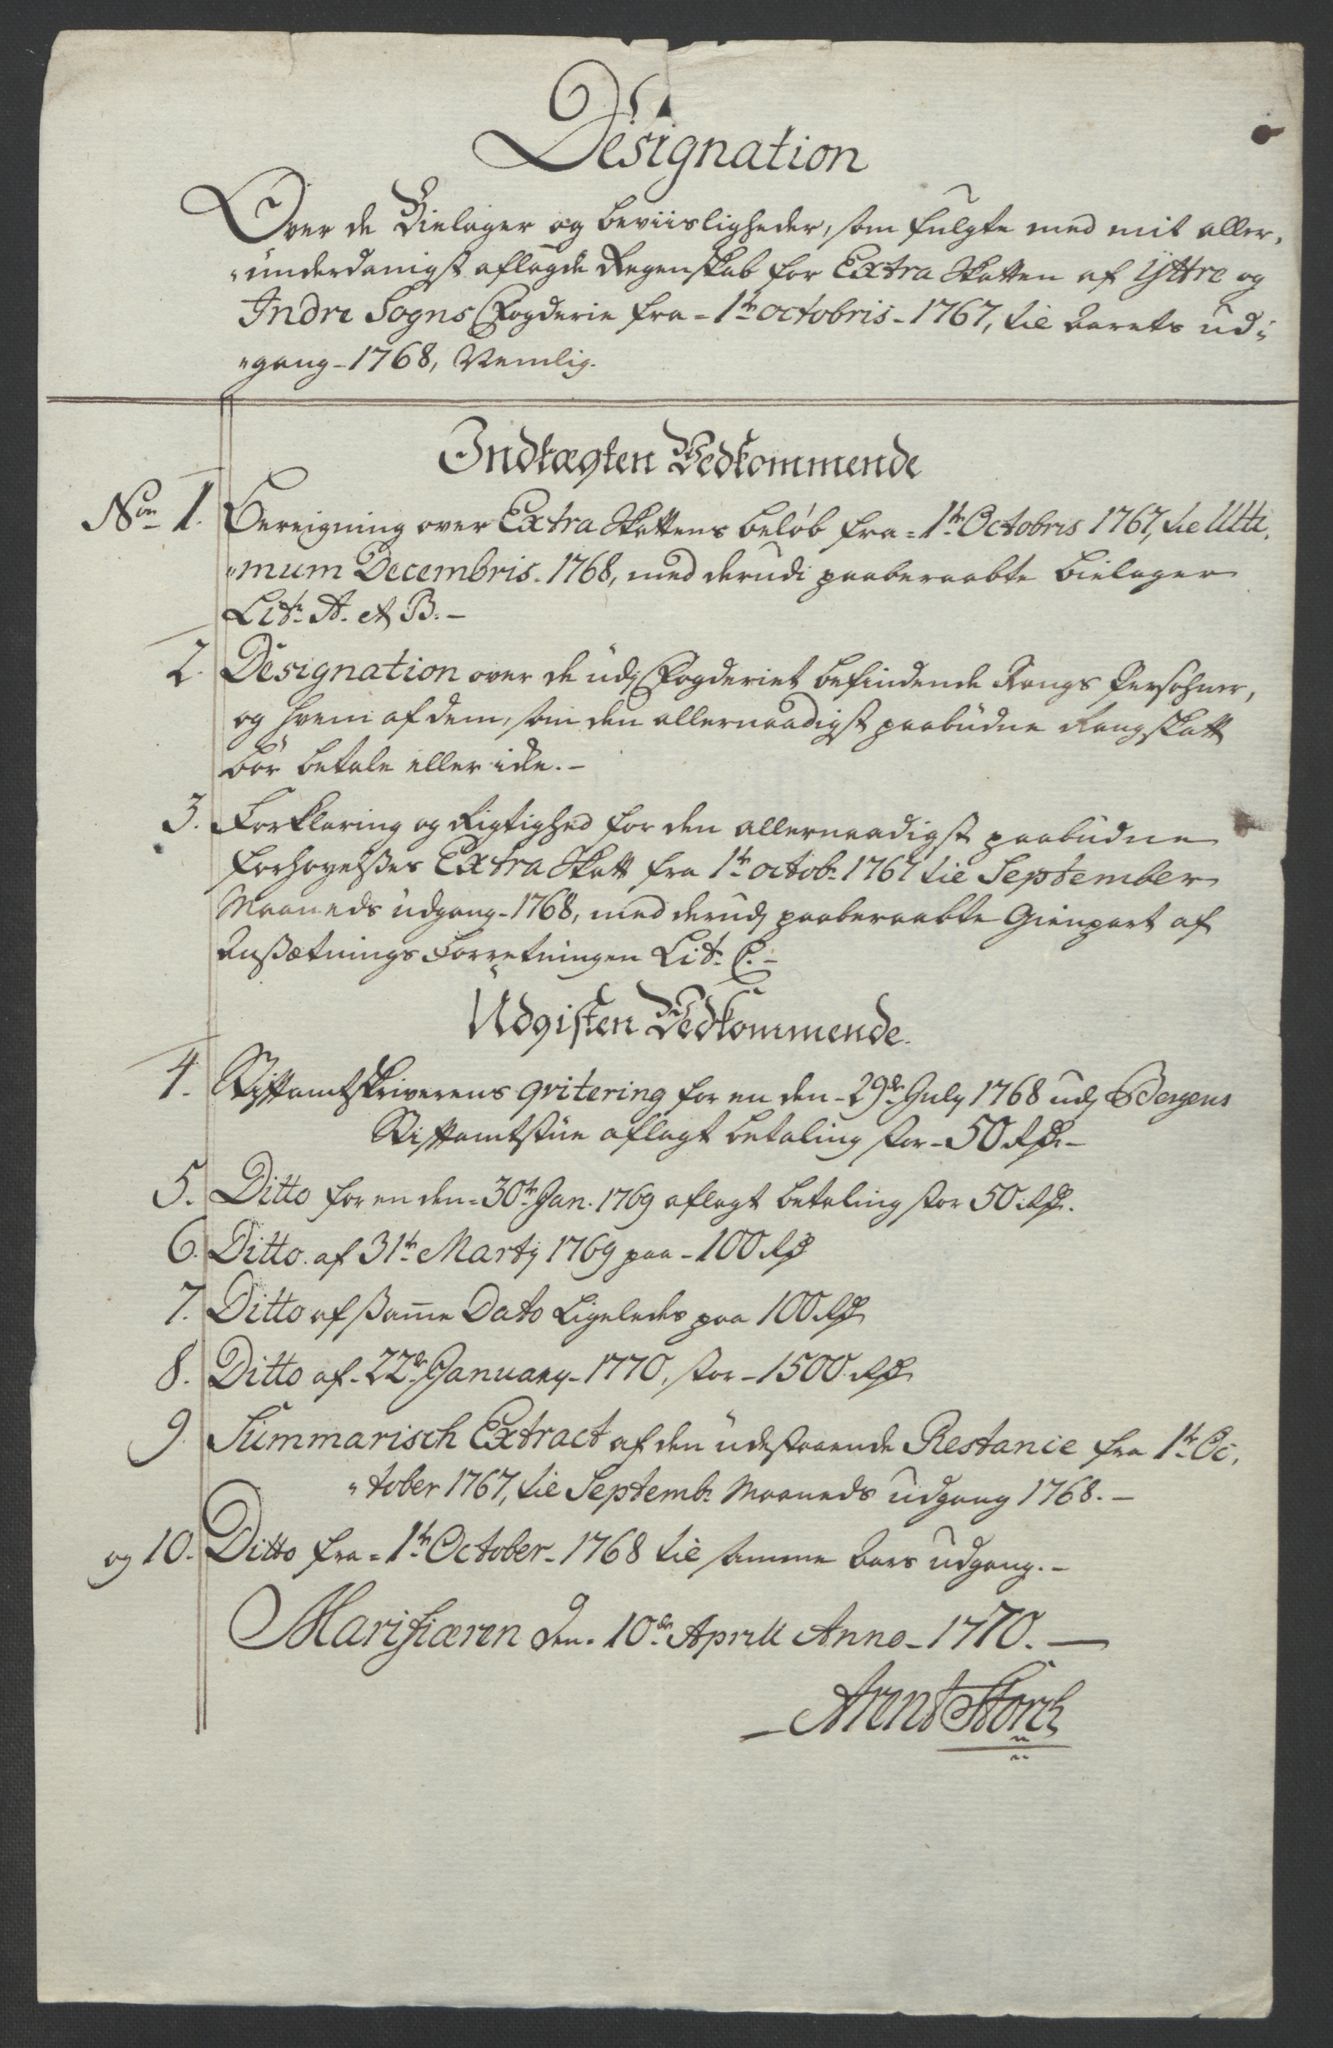 Designation
Over de Bielager og beviisligheder, som fulgte med mit aller,
underdanigst aflagde Regenskab for Extra Skatten af Yttre og
Indre Sogns Fogderie fra 1te octobris 1767, til Aarets ud-
gang 1768, Nemlig.
Indtægten Vedkommende
No 1. Bereigning over Extra Skattens beløb fra 1te Octobris 1767, til Ulti,
mum Decembris 1768, med derudi paaberaabte bielager
Lit: A. et B. –
2. Designation over de udj Fogderiet befindende Rangs Persohner,
og hvem af dem, som den allernaadigst paabudne Rang skatt
bør betale eller icke. –
3. Forklaring og Rigtighed for den allernaadigst paabudne
forhøyelses Extra Skatt fra 1te octob: 1767 til September
Maaneds udgang 1768, med derudj paaberaabte Gienpart af
Ansætnings Forretningen Lit: C. –
Udgiften Vedkommende.
4. Stiftamtskriverens qvitering for en den 29de July 1768 udj Bergens
Stiftamtstue aflagt betaling stor 50 Rdr. –
5. Ditto for en den 30te Jan. 1769 aflagt betaling stor 50 Rdr.
6. Ditto af 31te Martj 1769 paa 100 Rdr
7. Ditto af samme Dato Ligeledes paa 100 Rdr
8. Ditto af 22de January 1770, stor 1500 Rdr
9. Summarisch Extract af den udestaaende Restance fra 1te Oc,
tober 1767, til Septemb: Maaneds udgang 1768. –
og 10. Ditto fra 1te October 1768 til samme Aars udgang. –
Marifiæren den 10de Aprill Anno 1770. –
Arent Storch